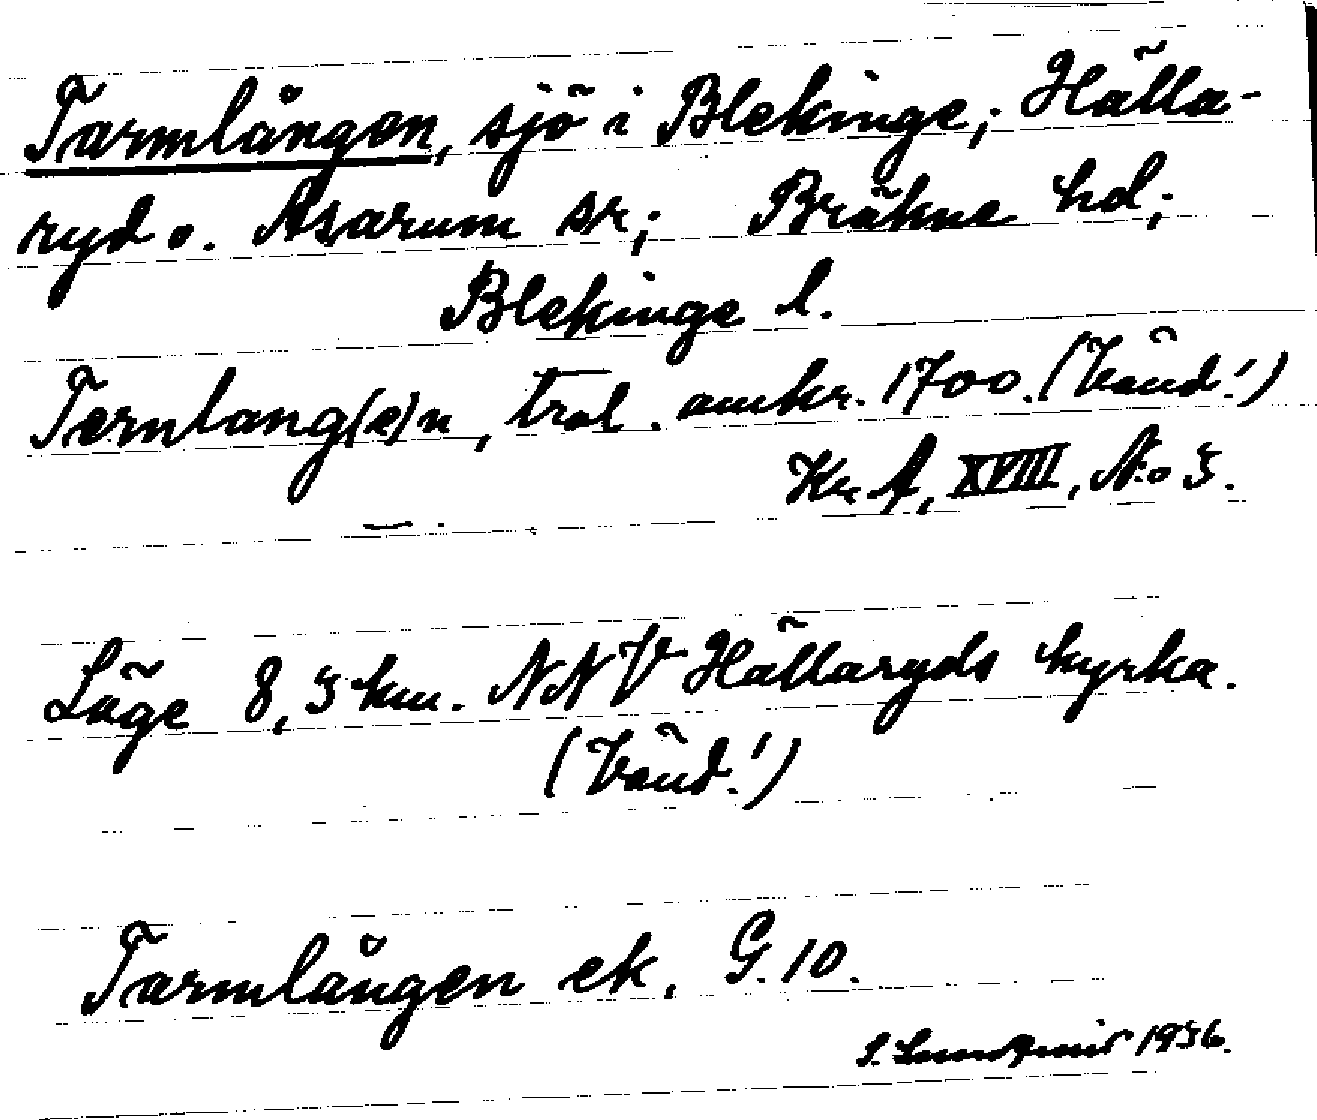 Tarmlången, sjö i Blekinge; Hälla-
ryd o. Asarum sr; Bräkne hd;
Blekinge l.
Ternlang(e)n, trol. omkr. 1700. (Vänd!)
Kr. A, XVIII, No 5.
Läge 8,5 km. NNV Hällaryds kyrka.
(Vänd!)
Tarmlången ek. G. 10.
1936.